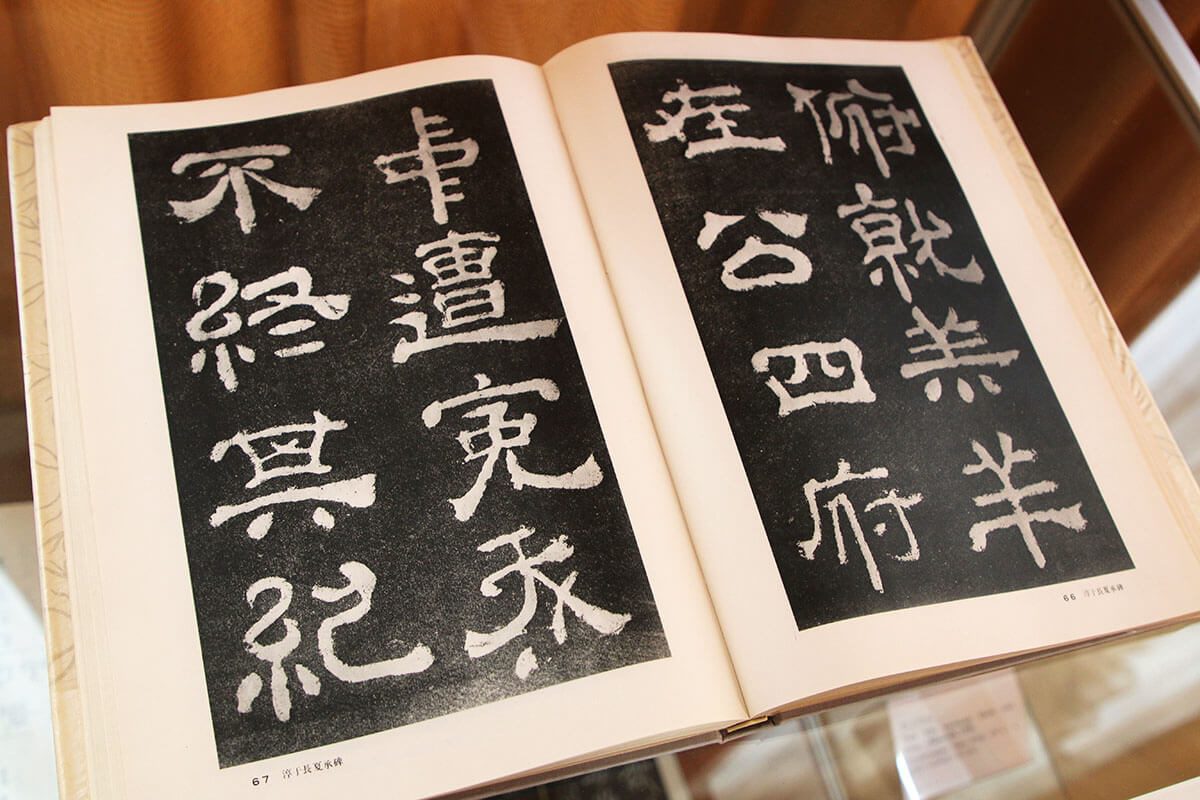 俯就羔羊
在公四府
66 淳于長夏承碑
中遭冤夭
不終其紀
67 淳于長夏承碑